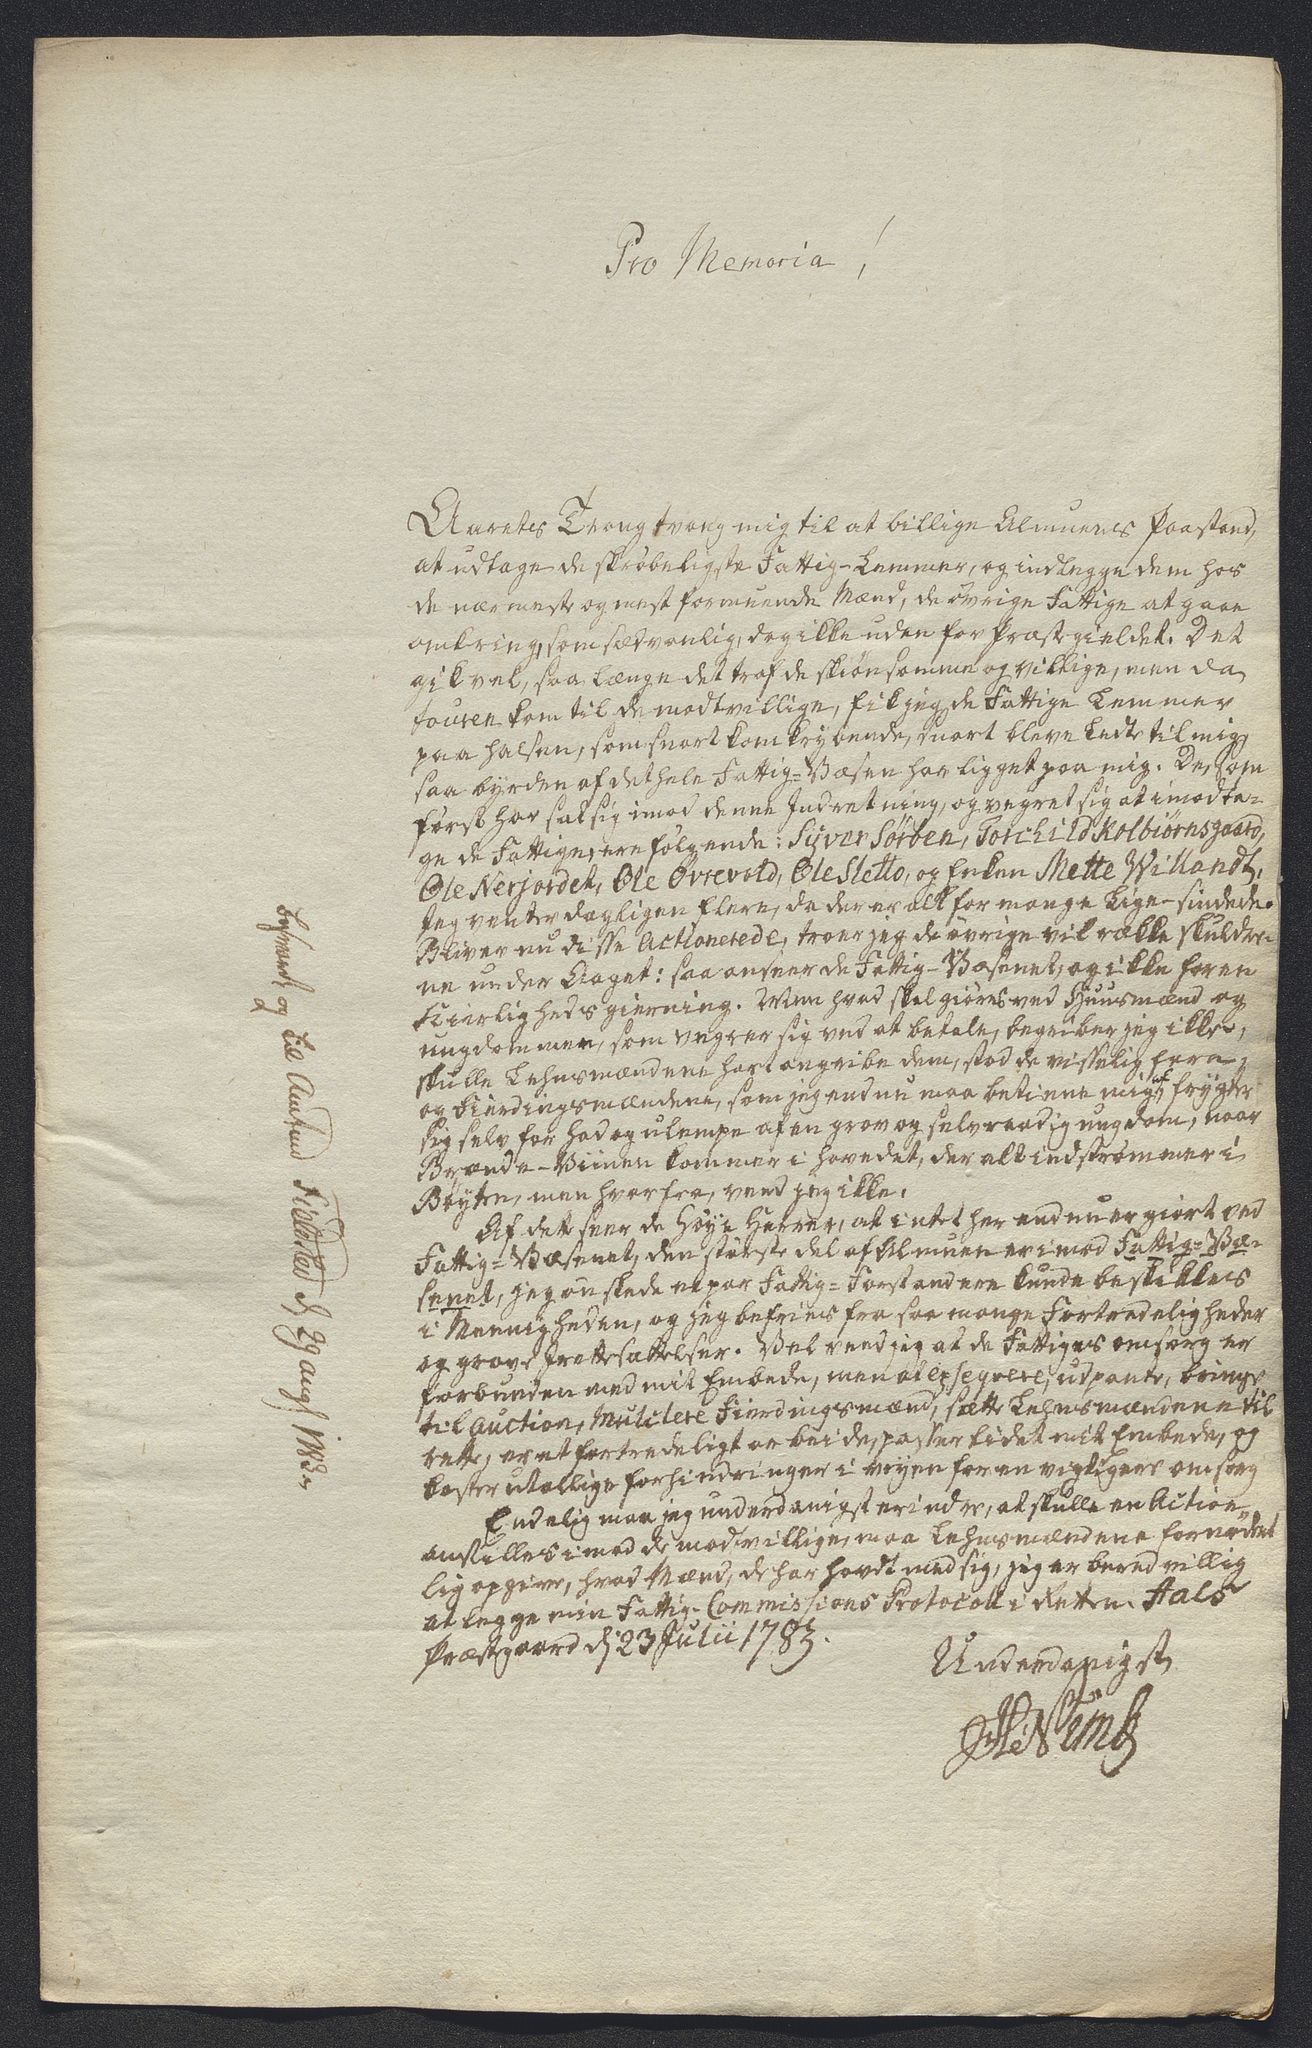 Pro Memoria!
Aarets Trang tvang mig til at billige Almuens Paastand,
at udtage de skröbeligste Fattig-Lemmer, og indlegge dem hos
de nærmeste og mest formuende Mænd, de övrige Fattige at gaae
omkring, som sædvanlig, dog ikke uden for Præstegieldet. Det
gik vel, saa længe det traf de skiönsomme og villige, men da
touren kom til de modtvillige, fik jeg de Fattige Lemmer
paa halsen, som snart kom krybende, snart bleve ledte til mig,
saa byrden af det hele Fattig-Væsen har ligget paa mig. De som
först har sat sig imod denne Indretning, og vegret sig at imodta-
ge de Fattige, ere fölgende: Syver Sörben, Torchild Kolbiörnsgaard,
Ole Nerjordet, Ole Övrevold, Ole Sletto, og Enken Mette Willandtz.
Jeg venter dagligen flere, da der er alt for mange Lige-sindede.
Bliver nu disse Actionerede, troer jeg de övrige vil række skuldre-
ne under Aaget: saa anseer de Fattig-Væsenet, og ikke for en
Kierligheds gierning. Men hvad skal giöres ved Huusmænd og
ungdommen, som vegrer sig ved at betale, begriber jeg ikke,
skulle Lehnsmændene hart angribe dem, stod de visselig fare,
og Fierdingsmændene, som jeg endnu maa betiene mig af, frygter
sig selv for had og ulempe af en grov og selvraadig ungdom, naar
Brænde-Viinen kommer i hovedet, der alt indströmmer i
Böyten, men hvorfra, veed jeg ikke.
Af dette seer de Höye Herrer, at intet her endnu er giort ved
Fattig-Væsenet, den störste del af Almuen er imod Fattig-Væ-
senet, jeg önskede et par Fattig-Forstandere kunde beskikkes
i Menigheden, og jeg befries fra saa mange Fortredeligheder
og grove Irettesættelser. Vel veed jeg at de Fattiges omsorg er
forbunden med mit Embede, men at exseqvere, udpante, bringe
til Auction, Mulctere Fierdingsmænd, sætte Lehnsmændene til
rette, er et fortredeligt arbeide, passer lidet mit Embede, og
kaster utallige forhindringer i veyen for en vigtigere omsorg
Endelig maa jeg underdanigst erindre, at skulle en Action
anstilles imod de modvillige, maa Lehnsmændene fornödent
lig opgive, hvad Mænd, de har havdt med sig, jeg er beredvillig
at legge min Fattig-Commissions Protocoll i Retten. Aals
Præstegaard d: 23 Julii 1783.
Underdanigst
besvaret og til Amtmd d: 29 aug: 1783.